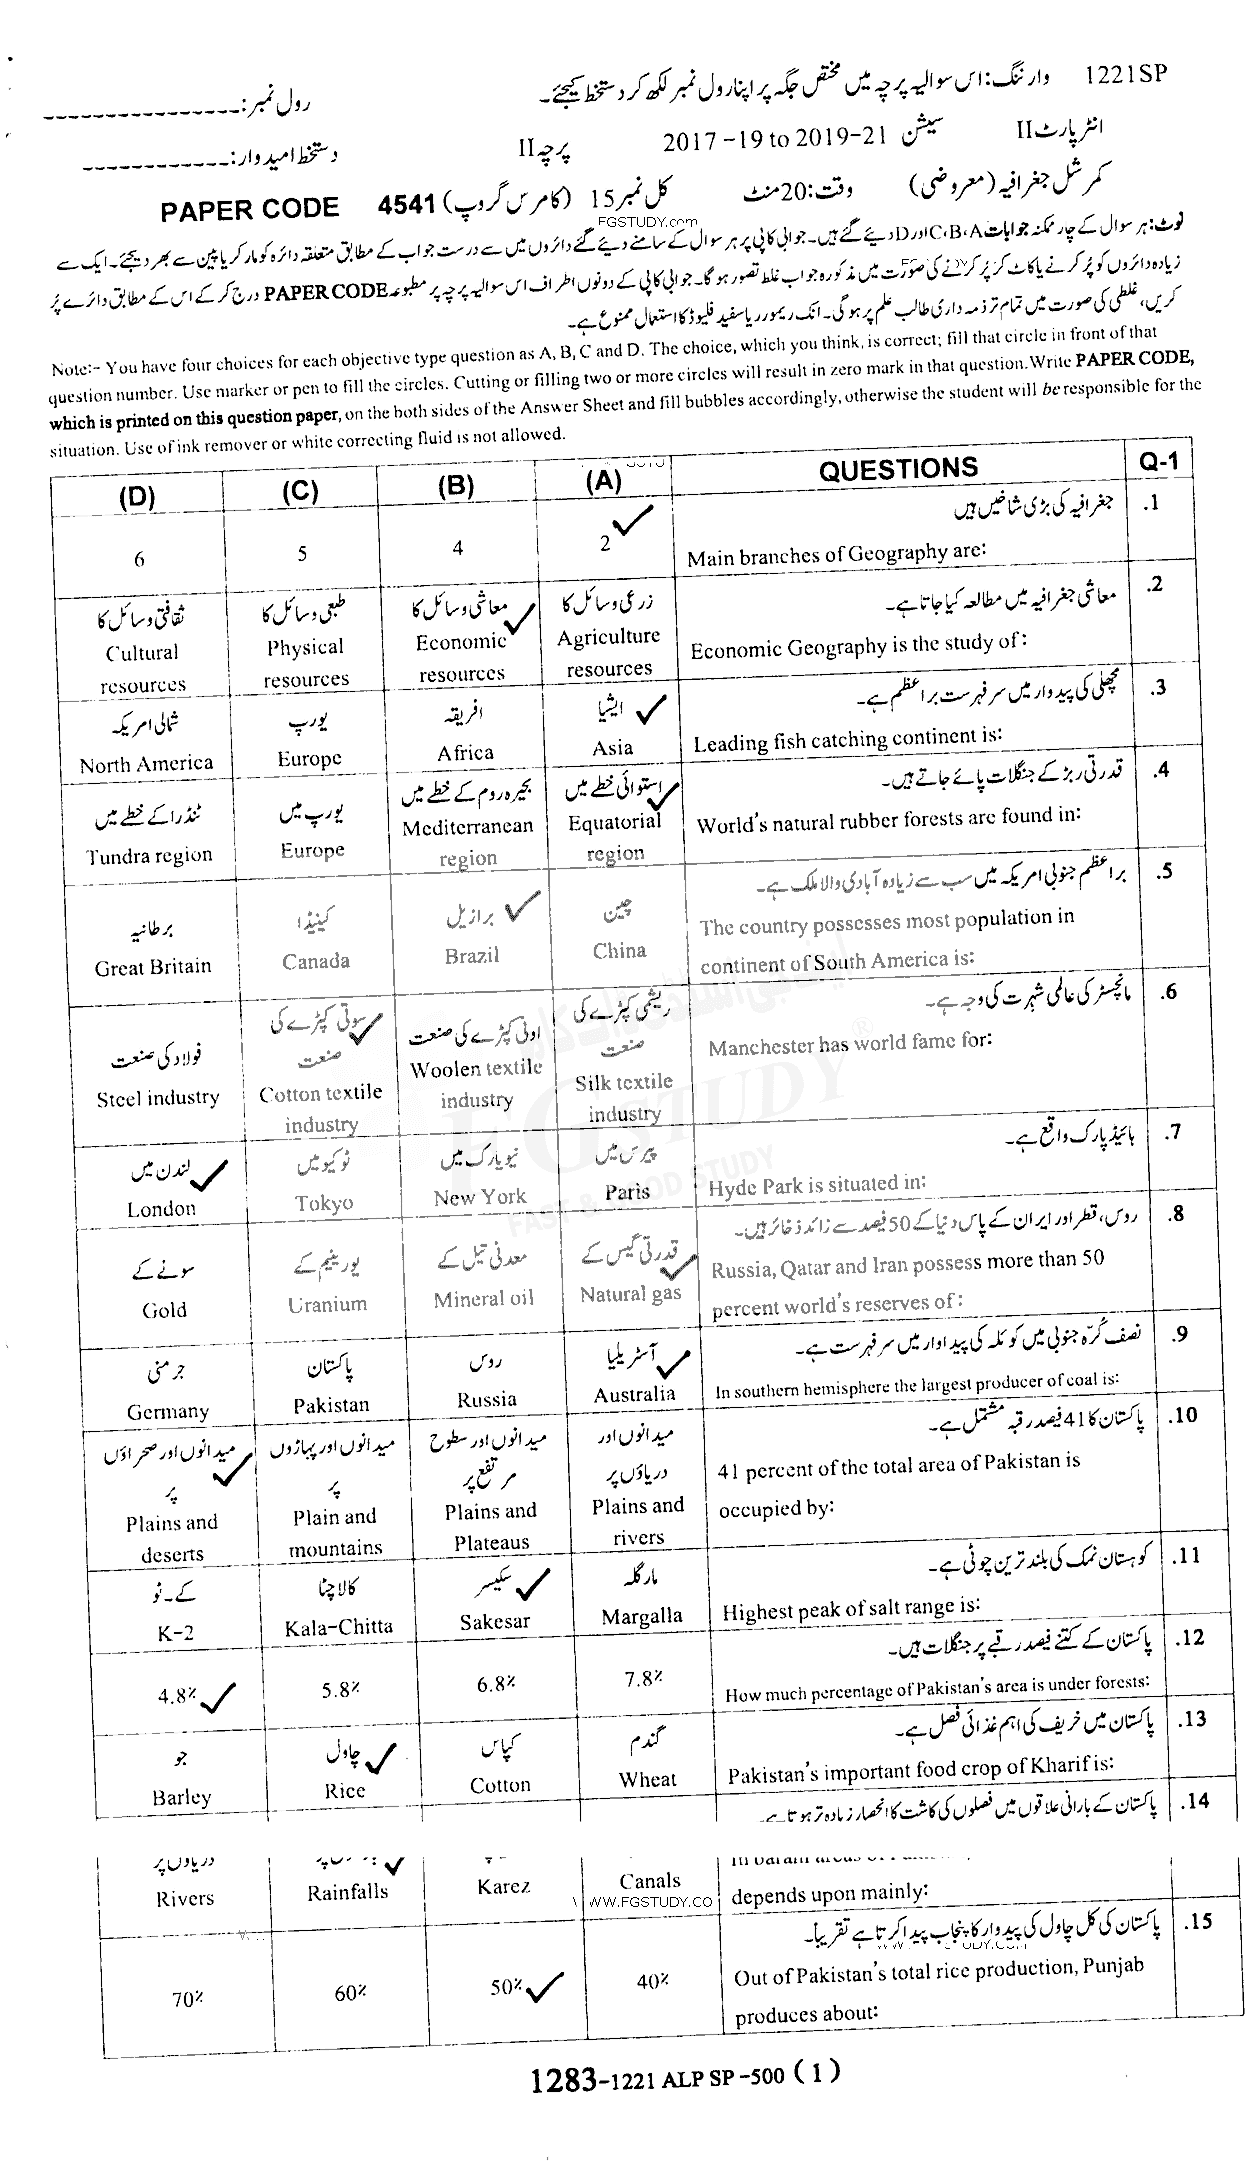 1221SP وارننگ: اس سوالیہ پرچہ میں مختص جگہ پر اپنا رول نمبر لکھ کر دستخط کیجئے۔
رول نمبر:
انٹر پارٹ II سیشن 2017 -19 to 2019-21 پرچہ II
دستخط امیدوار:
کمرشل جغرافیہ (معروضی) وقت: 20 منٹ کل نمبر 15 (کامرس گروپ) PAPER CODE 4541
FGSTUDY.com
نوٹ: ہر سوال کے چار ممکنہ جوابات A، B، C اور D دیئے گئے ہیں۔ جوابی کاپی پر ہر سوال کے سامنے دیئے گئے دائروں میں سے درست جواب کے مطابق متعلقہ دائرہ کو مارکر یا پین سے بھر دیجئے۔ ایک سے
زیادہ دائروں کو پُر کرنے یا کاٹ کر پُر کرنے کی صورت میں مذکورہ جواب غلط تصور ہو گا۔ جوابی کاپی کے دونوں اطراف اس سوالیہ پرچہ پر مطبوعہ PAPER CODE درج کر کے اس کے مطابق دائرے پُر
کریں، غلطی کی صورت میں تمام تر ذمہ داری طالب علم پر ہو گی۔ انک ریموور یا سفید فلیوڈ کا استعمال ممنوع ہے۔
Note:- You have four choices for each objective type question as A, B, C and D. The choice, which you think, is correct; fill that circle in front of that
question number. Use marker or pen to fill the circles. Cutting or filling two or more circles will result in zero mark in that question. Write PAPER CODE,
which is printed on this question paper, on the both sides of the Answer Sheet and fill bubbles accordingly, otherwise the student will be responsible for the
situation. Use of ink remover or white correcting fluid is not allowed.
(D) (C) (B) (A) QUESTIONS Q-1
جغرافیہ کی بڑی شاخیں ہیں .1
6 5 4 2 Main branches of Geography are:
ثقافتی وسائل کا طبعی وسائل کا معاشی وسائل کا زرعی وسائل کا معاشی جغرافیہ میں مطالعہ کیا جاتا ہے۔ .2
Cultural Physical Economic Agriculture Economic Geography is the study of:
resources resources resources resources
شمالی امریکہ یورپ افریقہ ایشیا مچھلی کی پیدوار میں سر فہرست براعظم ہے۔ .3
North America Europe Africa Asia Leading fish catching continent is:
ٹنڈرا کے خطے میں یورپ میں بحیرہ روم کے خطے میں استوائی خطے میں قدرتی ربڑ کے جنگلات پائے جاتے ہیں۔ .4
Tundra region Europe Mediterranean Equatorial World's natural rubber forests are found in:
region region
برطانیہ کینیڈا برازیل چین براعظم جنوبی امریکہ میں سب سے زیادہ آبادی والا ملک ہے۔ .5
Great Britain Canada Brazil China The country possesses most population in
continent of South America is:
فولاد کی صنعت سوتی کپڑے کی صنعت اونی کپڑے کی صنعت ریشمی کپڑے کی صنعت مانچسٹر کی عالمی شہرت کی وجہ ہے۔ .6
Steel industry Cotton textile Woolen textile Silk textile Manchester has world fame for:
industry industry industry
لندن میں ٹوکیو میں نیویارک میں پیرس میں ہائیڈ پارک واقع ہے۔ .7
London Tokyo New York Paris Hyde Park is situated in:
سونے کے یورینیم کے معدنی تیل کے قدرتی گیس کے روس، قطر اور ایران کے پاس دنیا کے 50 فیصد سے زائد ذخائر ہیں۔ .8
Gold Uranium Mineral oil Natural gas Russia, Qatar and Iran possess more than 50
percent world's reserves of:
جرمنی پاکستان روس آسٹریلیا نصف کُرہ جنوبی میں کوئلہ کی پیداوار میں سر فہرست ہے۔ .9
Germany Pakistan Russia Australia In southern hemisphere the largest producer of coal is:
میدانوں اور صحراؤں پر میدانوں اور پہاڑوں پر میدانوں اور سطوح مرتفع پر میدانوں اور دریاؤں پر پاکستان کا 41 فیصد رقبہ مشتمل ہے۔ .10
Plains and Plain and Plains and Plains and 41 percent of the total area of Pakistan is
deserts mountains Plateaus rivers occupied by:
کے۔ٹو کالا چٹا سکیسر مارگلہ کوہستان نمک کی بلند ترین چوٹی ہے۔ .11
K-2 Kala-Chitta Sakesar Margalla Highest peak of salt range is:
پاکستان کے کتنے فیصد رقبے پر جنگلات ہیں۔ .12
4.8% 5.8% 6.8% 7.8% How much percentage of Pakistan's area is under forests:
جو چاول کپاس گندم پاکستان میں خریف کی اہم غذائی فصل ہے۔ .13
Barley Rice Cotton Wheat Pakistan's important food crop of Kharif is:
پاکستان کے بارانی علاقوں میں فصلوں کی کاشت کا انحصار زیادہ تر ہوتا ہے۔ .14
دریاؤں پر
Rivers Rainfalls Karez Canals depends upon mainly:
WWW.FGSTUDY.CO
پاکستان کی کل چاول کی پیدوار کا پنجاب پیدا کرتا ہے تقریباً۔ .15
70% 60% 50% 40% Out of Pakistan's total rice production, Punjab
produces about:
1283-1221 ALP SP -500 (1)
FG STUDY
FAST & GOOD STUDY